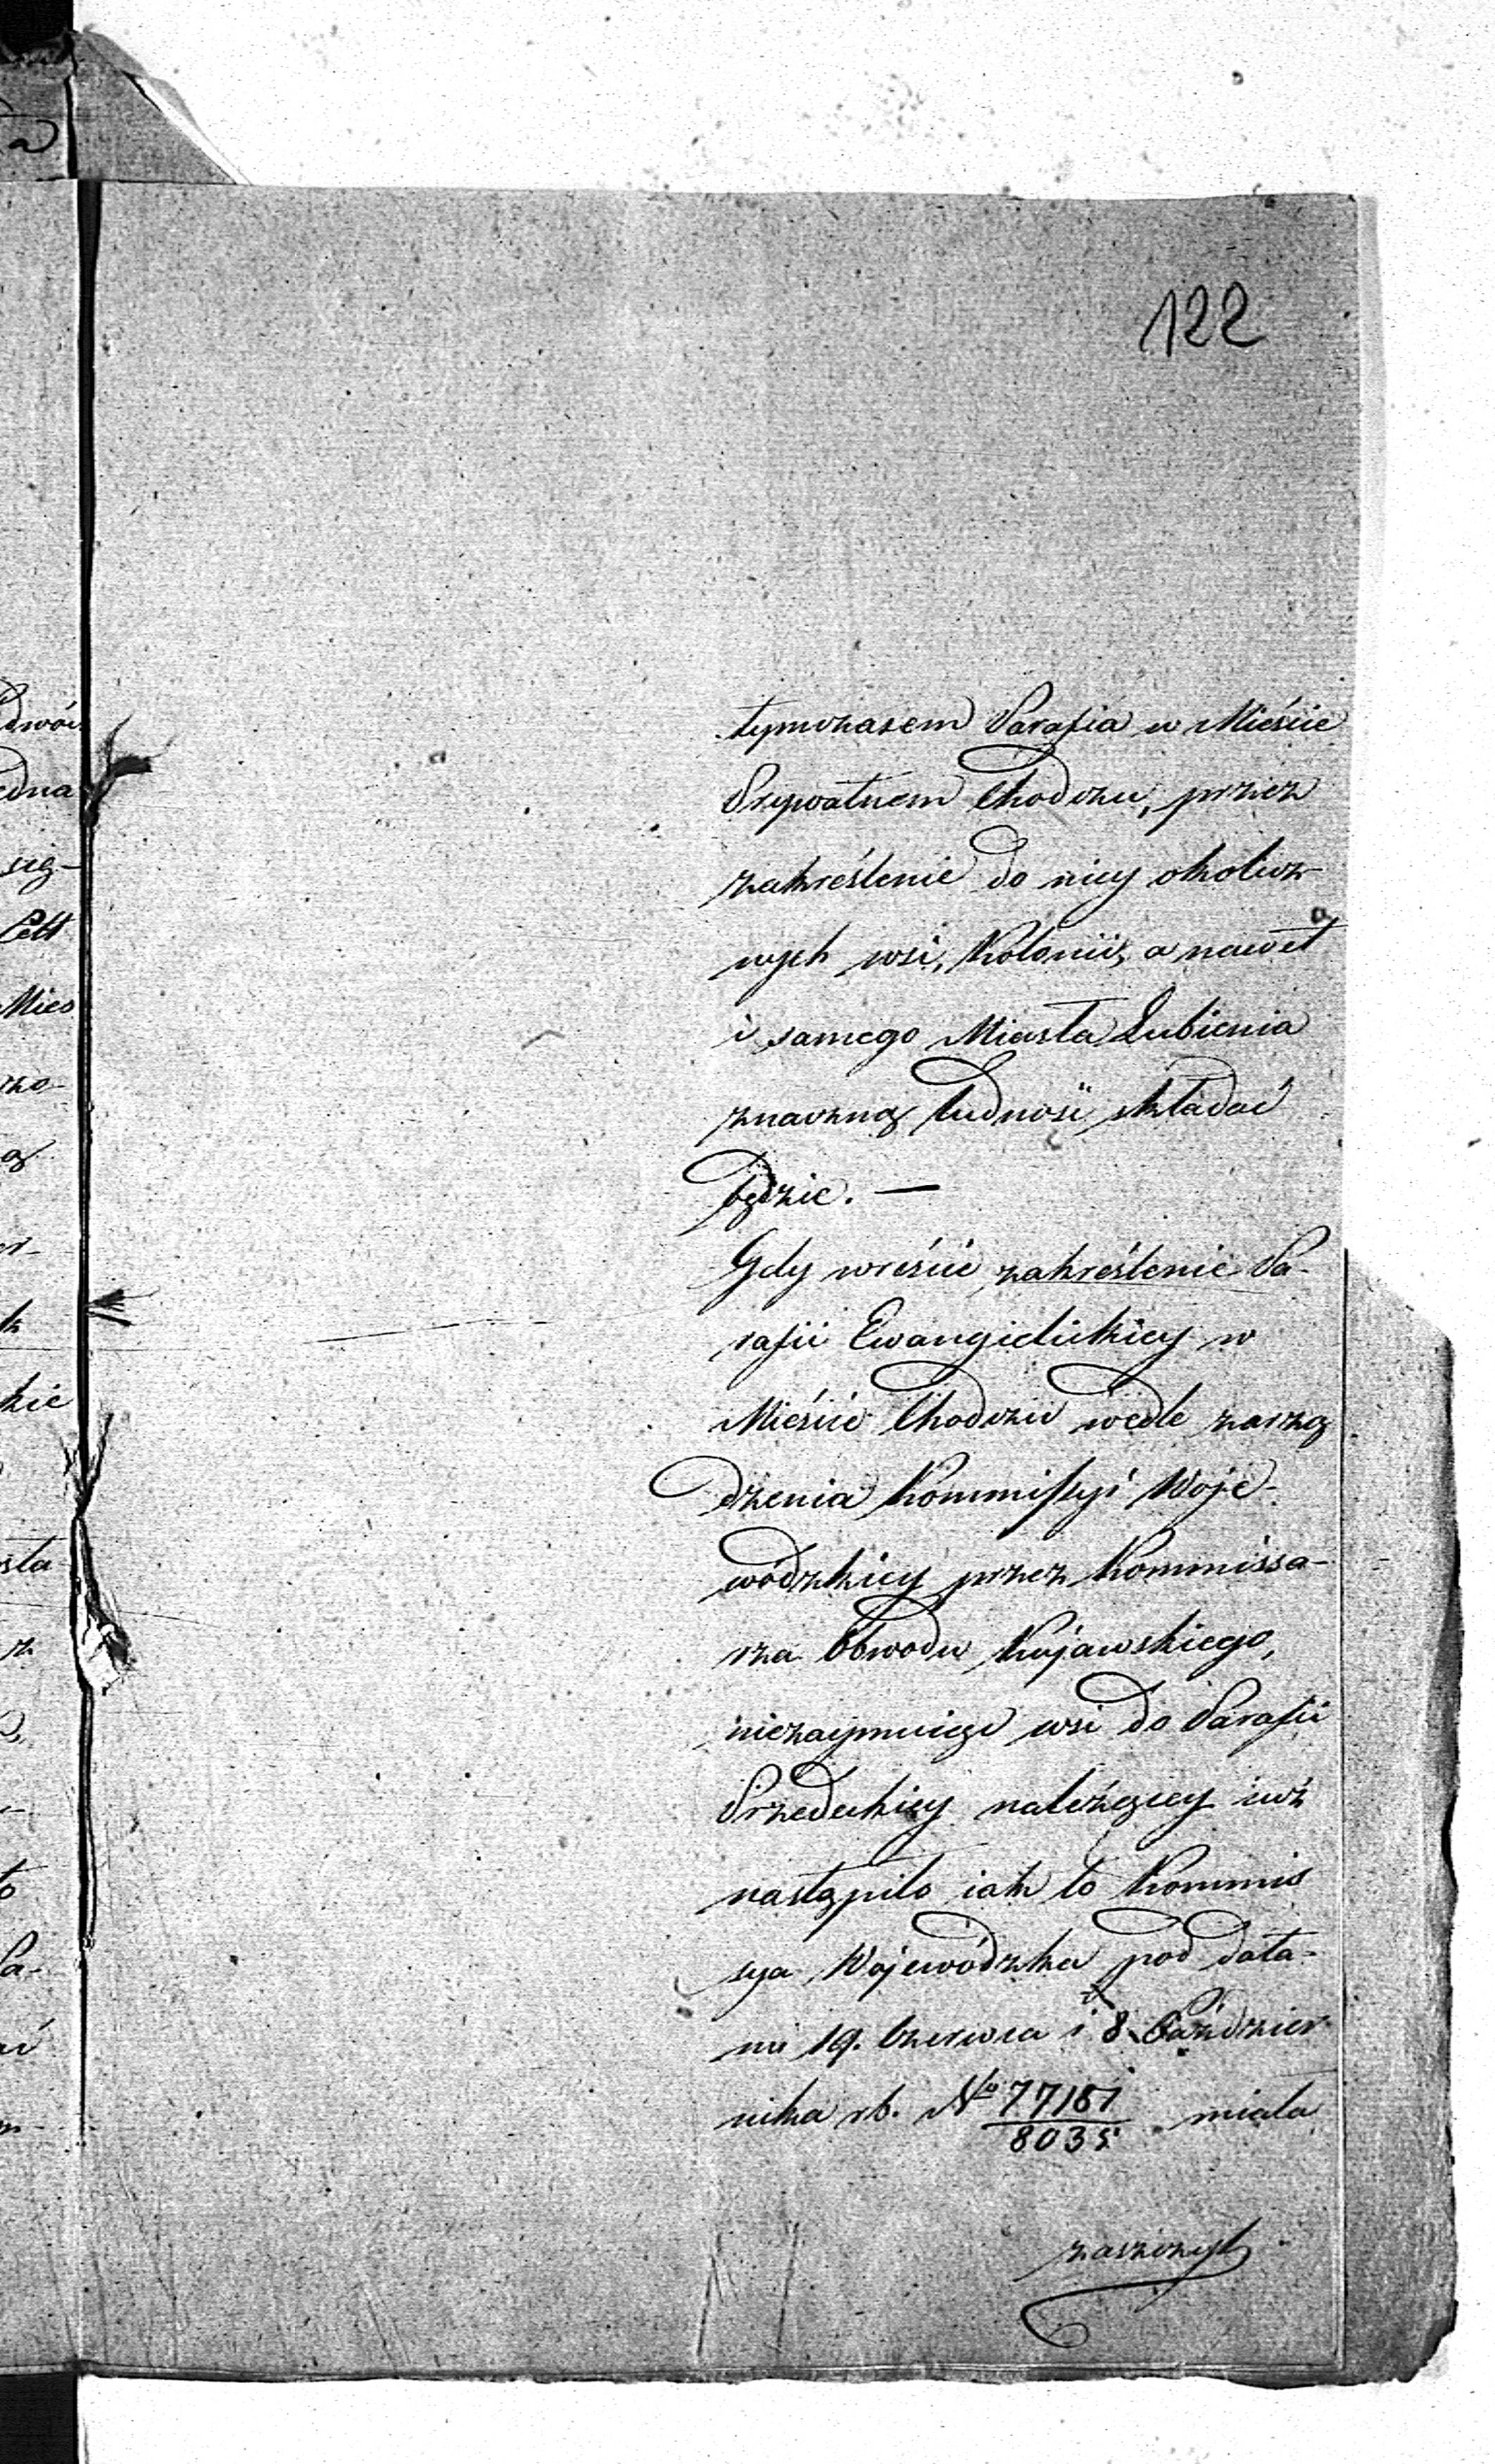 122
tymczasem Parafia w Mieście
Prywatnem Chodczu, przez
zakreślenie do niey okolicz-
nych wsi, Kolonii, a nawet
i samego Miasta Lubienia
znaczną ludność składać
będzie. —
Gdy wreście zakreślenie Pa-
rafii Ewangielickiey w
Mieście Chodczu wedle zarzą
dzenia Kommissyi Woje-
wódzkiey przez Kommissa-
rza Obwodu Kujawskiego,
niezaymuiąc wsi do Parafii
Przedeckiey należącey iuż
nastąpiło iak to Kommis
sya Wojewódzka pod data-
mi 19. Czerwca i 8 Paździer
nika rb. No 77181/8035 miała
zaszczyt